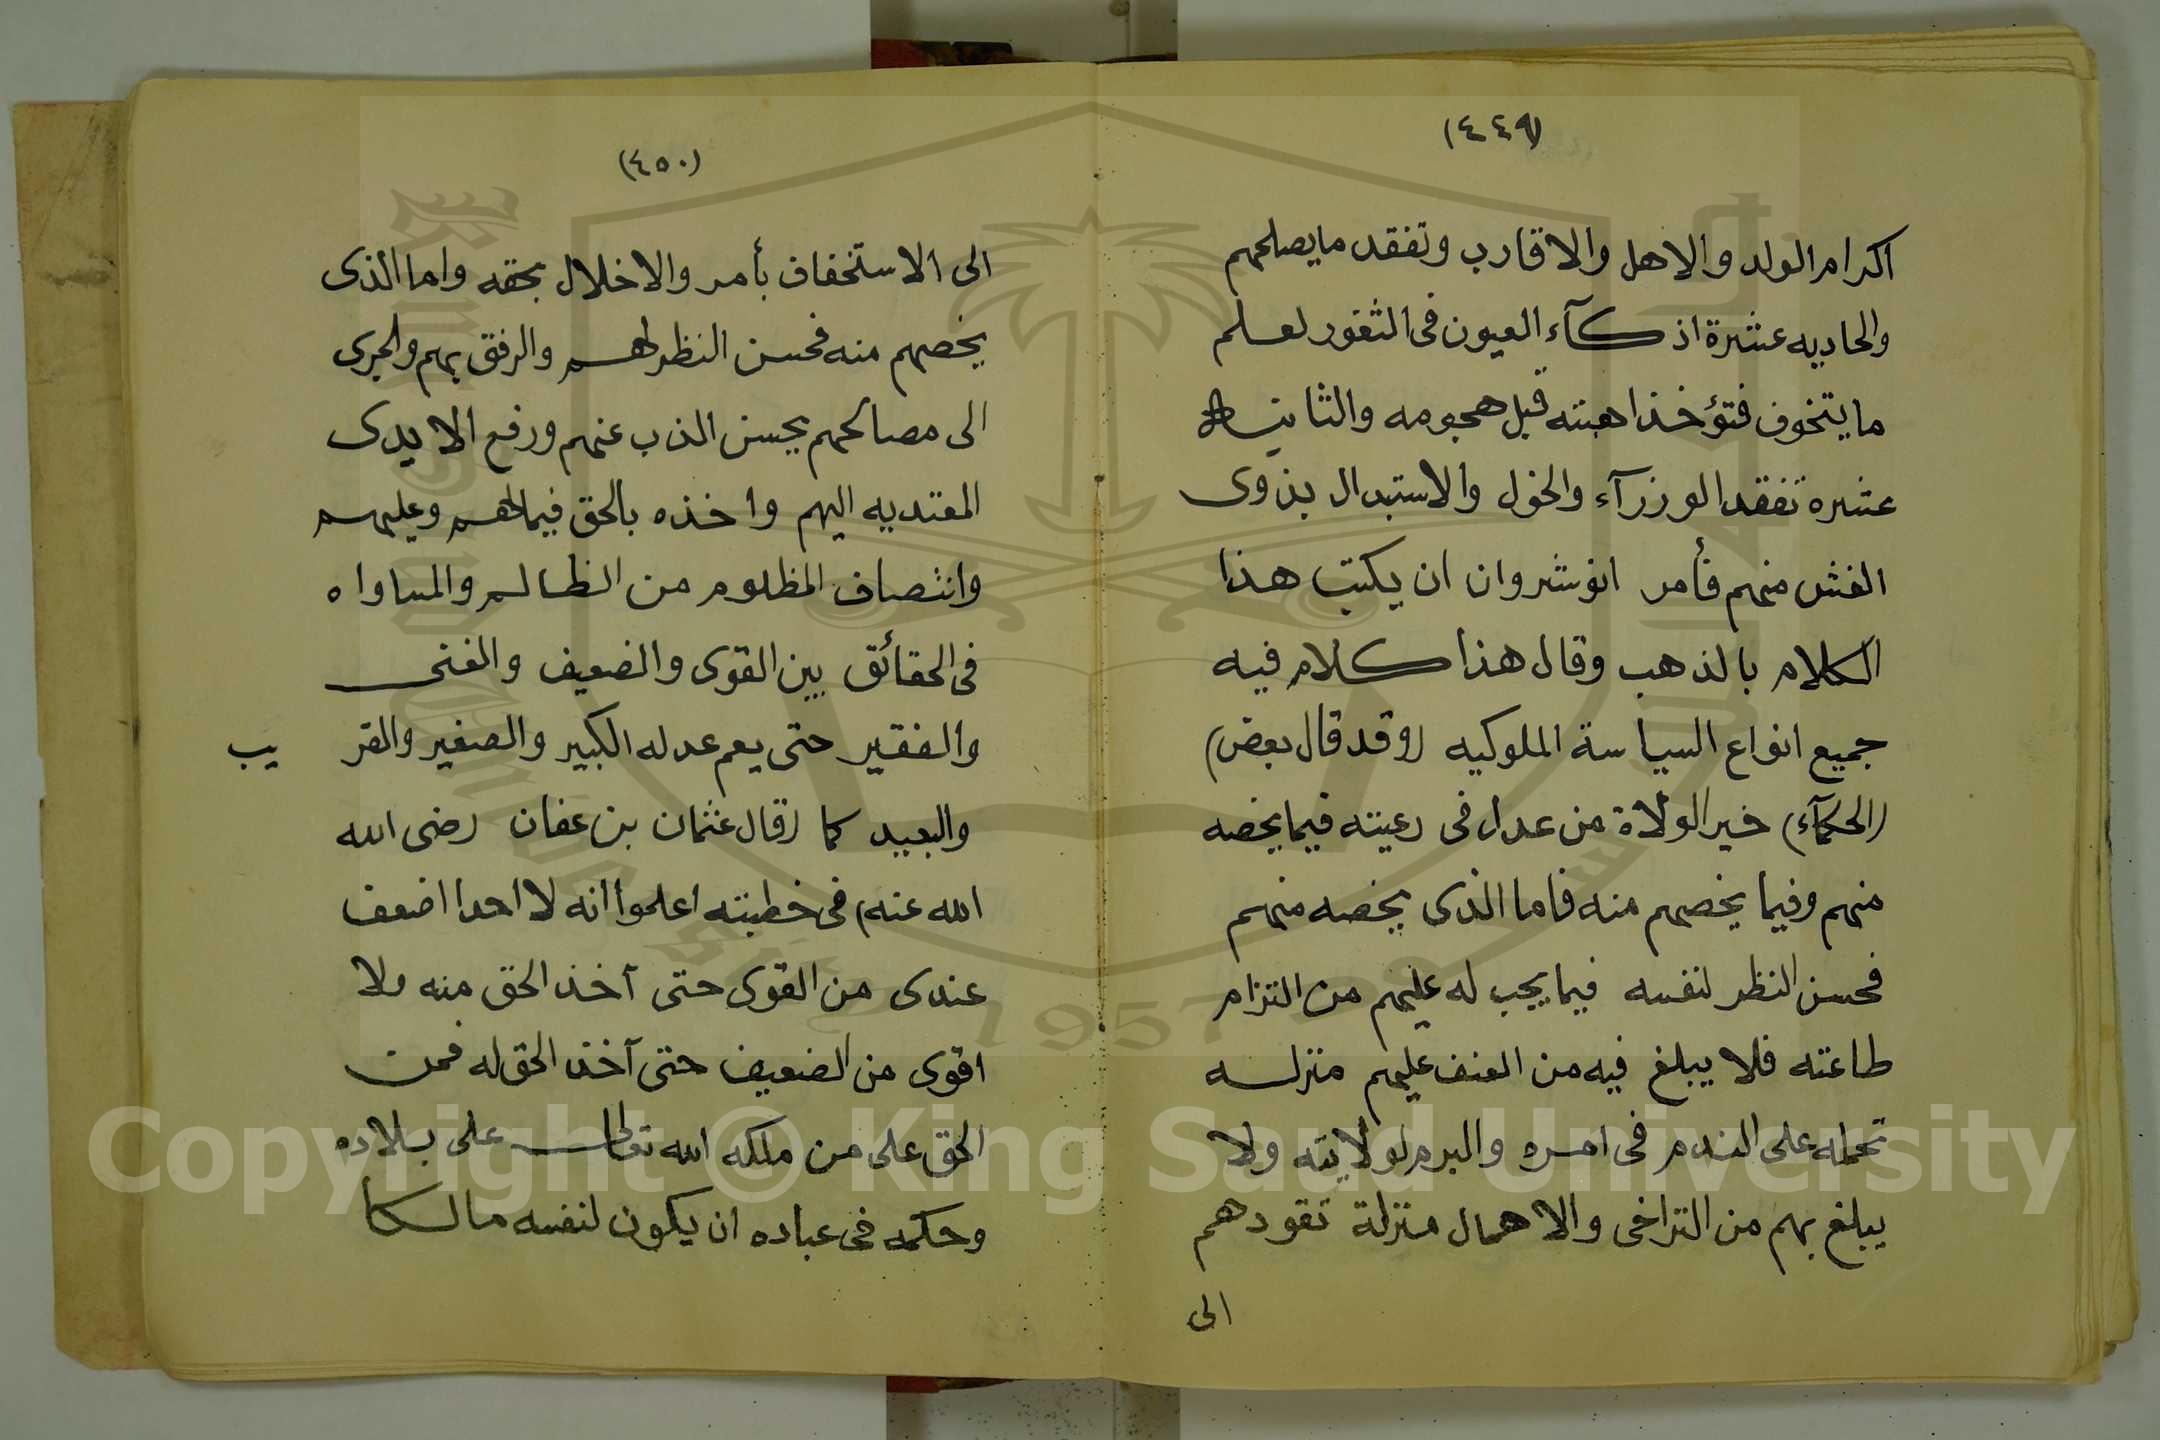 (٤٤٩)
اكرام الولد والاهل والاقارب وتفقد مايصلحهم
والحاديه عشرة اذكآء العيون فى الثغور لعلم
مايتخوف فتؤخذ اهبته قبل هجومه والثانيه
عشره تفقد الوزرآء والخول والاستبدال بذوى
الغش منهم فأمر انوشروان ان يكتب هذا
الكلام بالذهب وقال هذا كلام فيه
جميع انواع السياسة الملوكيه (وقد قال بعض)
(الحكمآء) خير الولاة من عدل فى رعيته فيما يخصه
منهم وفيما يخصهم منه فاما الذى يخصه منهم
فحسن النظر لنفسه فيما يجب له عليهم من التزام
طاعته فلا يبلغ فيه من العنف عليهم منزله
تحمله على الندم فى امره والبرم لولايته ولا
يبلغ بهم من التراخى والاهمال منزلة تقودهم
الى
(٤٥٠)
الى الاستخفاف بأمر والاخلال بحقه واما الذى
يخصهم منه فحسن النظر لهم والرفق بهم والجرى
الى مصالحهم بحسن الذب عنهم ورفع الايدى
المعتديه اليهم واخذه بالحق فيما لهم وعليهم
وانتصاف المظلوم من الظالم والمساواه
فى الحقائق بين القوى والضعيف والغنى
والفقير حتى يعم عدله الكبير والصغير والقر يب
والبعيد كما (قال عثمان بن عفان رضى الله
الله عنه) فى خطبته اعلموا انه لا احدا اضعف
عندى من القوى حتى آخذ الحق منه ولا
اقوى من الضعيف حتى آخذ الحق له فمن
الحق على من ملكه الله تعالى على بلاده
وحكمه فى عباده ان يكون لنفسه مالكا
1957
Copyright © King Saud University